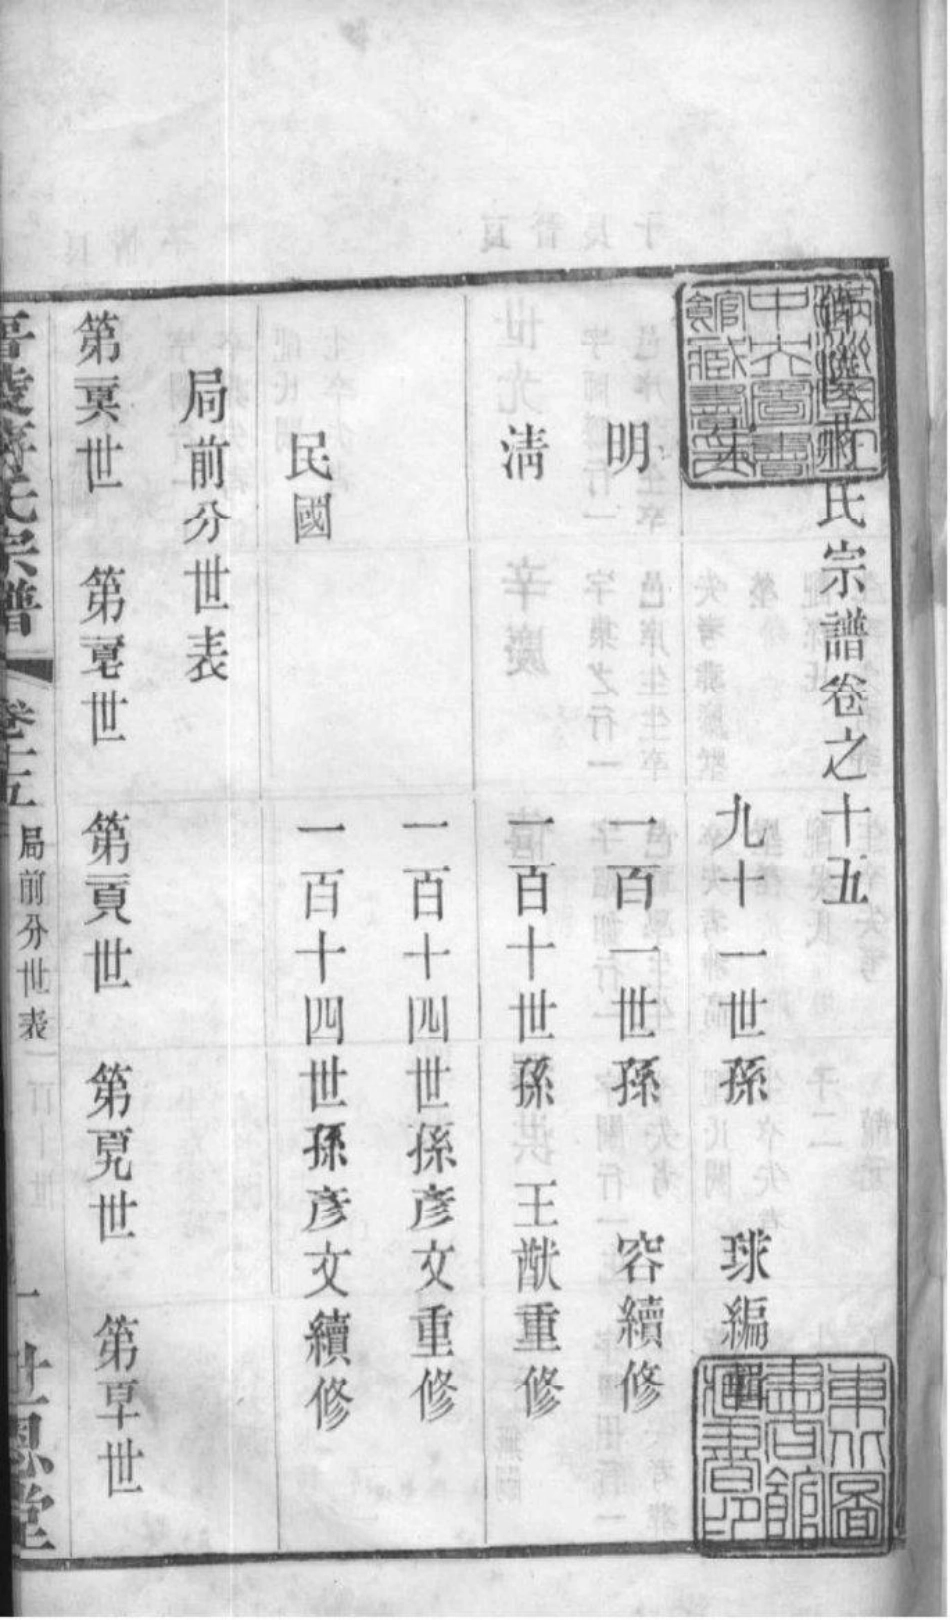 蔣氏宗譜卷之十五
九十一世孫 球編輯
明 一百一世孫 容續修
清 一百十世孫王猷重修
一百十四世孫彥文重修
民國 一百十四世孫彥文續修
局前分世表
第一百六世 第一百七世 第一百八世 第一百九世 第一百十世
晉陵蔣氏宗譜 卷十五 局前分世表 一 世恩堂
中央圖書
東北圖書館藏書印